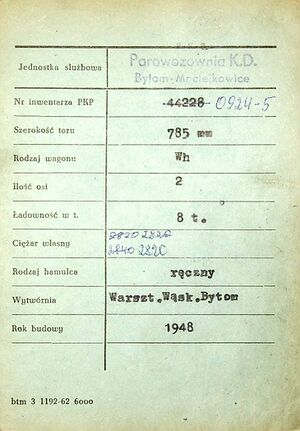 Jednostka służbowa Parowozownia K.D.
Bytom-
Nr inwentarza PKP 44228 0924-5
Szerokość toru 785 mm
Rodzaj wagonu Wh
Ilość osi 2
Ładowność w t. 8 t.
2820 2826
Ciężar własny
2840 2820
Rodzaj hamulca ręczny
Wytwórnia Warszt.Wąsk.Bytom
Rok budowy 1948
btm 3 1192-62 6000